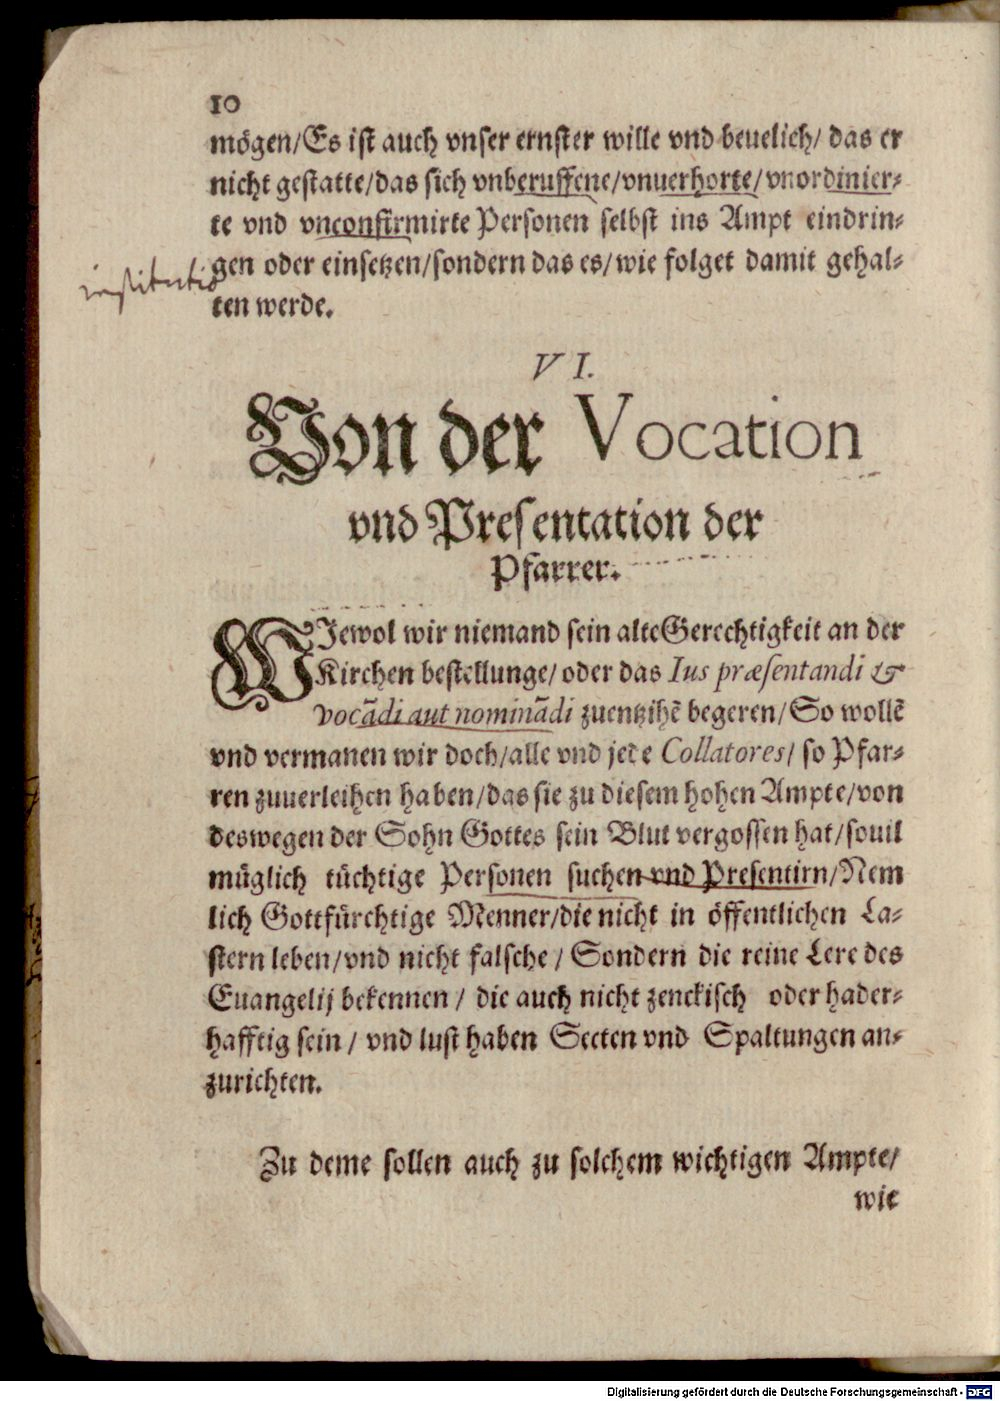 10
mögen/Es ist auch vnser ernster wille vnd beuelich/ das er
nicht gestatte/das sich vnberuffene/vnuerhorte/vnordinier-
te vnd vnconfirmirte Personen selbst ins Ampt eindrin-
gen oder einsetzen/sondern das es/wie folget damit gehal-
institutio
ten werde.
VI.
Von der Vocation
vnd Presentation der
Pfarrer.
WJewol wir niemand sein alte Gerechtigkeit an der
Kirchen bestellunge/ oder das Ius præsentandi &
vocādi aut nominādi zuentzihē begeren/So wollē
vnd vermanen wir doch/alle vnd jede Collatores/ so Pfar-
ren zuuerleihen haben/das sie zu diesem hohen Ampte/von
deswegen der Sohn Gottes sein Blut vergossen hat/souil
müglich tüchtige Personen suchen vnd Presentirn/Nem
lich Gottfürchtige Menner/die nicht in öffentlichen La-
stern leben/vnd nicht falsche/ Sondern die reine Lere des
Euangelij bekennen/ die auch nicht zenckisch oder hader-
hafftig sein/ vnd lust haben Secten vnd Spaltungen an-
zurichten.
Zu deme sollen auch zu solchem wichtigen Ampte/
wie
Digitalisierung gefördert durch die Deutsche Forschungsgemeinschaft - DFG